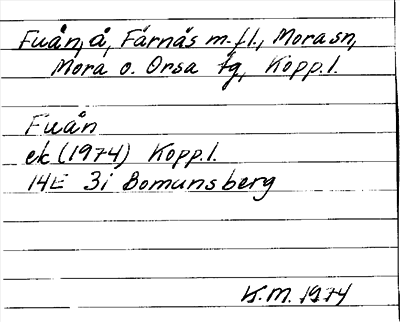 Fuån, å, Färnäs m.fl., Mora sn,
Mora o. Orsa tg, Kopp.l.
Fuån
ek (1974) Kopp.l.
14E 3i Bomunsberg
K.M. 1974